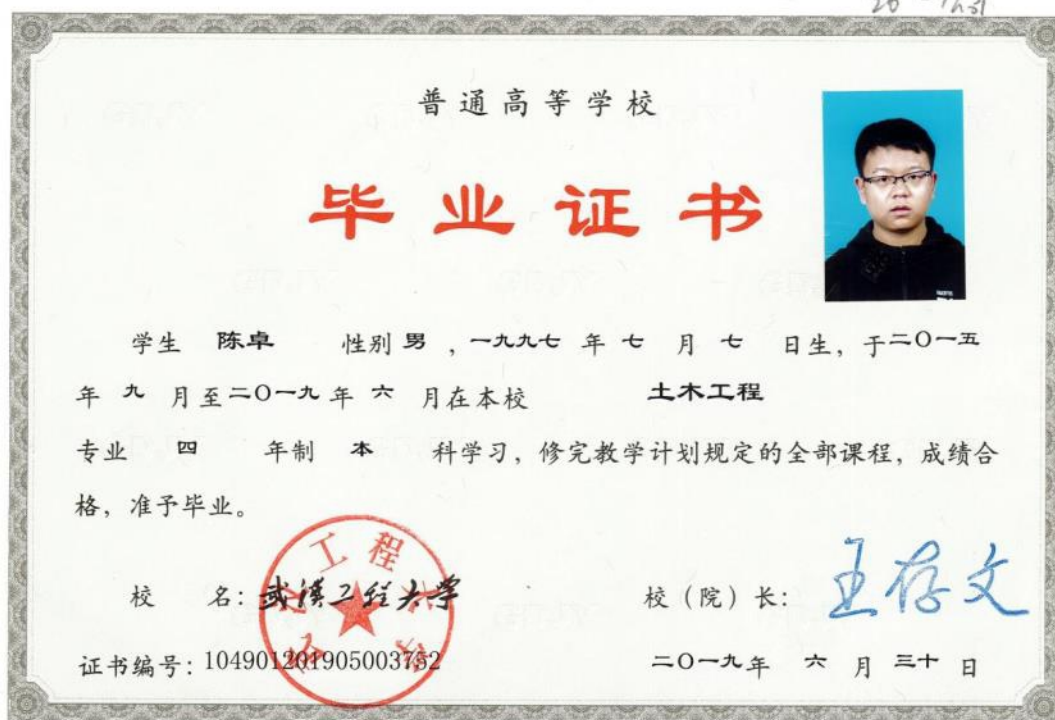 普通高等学校
毕业证书
学生 陈卓 性别 男 ,一九九七 年 七 月 七 日生, 于二〇一五
年 九 月至二〇一九年 六 月在本校 土木工程
专业 四 年制 本 科学习, 修完教学计划规定的全部课程, 成绩合
格, 准予毕业。
校 名: 武汉工程大学 校(院)长: 王存文
证书编号: 104901201905003752 二〇一九年 六 月 三十 日